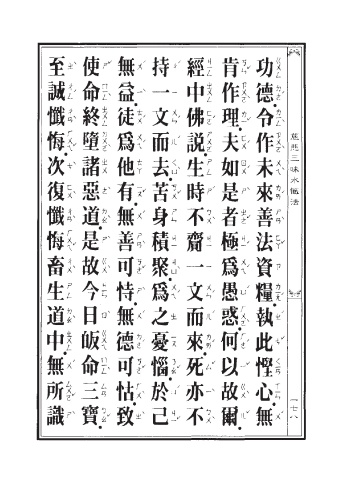 慈悲三昧水懺法
一七八
功德.令作未來善法資糧.執此慳心.無
肯作理.夫如是者.極為愚惑.何以故爾.
經中佛說.生時不齎一文而來.死亦不
持一文而去.苦身積聚.為之憂惱.於己
無益.徒為他有.無善可恃.無德可怙.致
使命終墮諸惡道.是故今日皈命三寶.
至誠懺悔.次復懺悔畜生道中.無所識